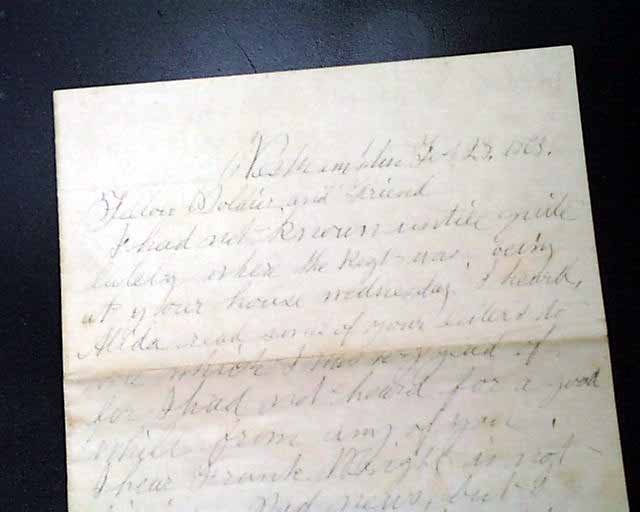 Westhampton Feb 23. 1863.
Fellow Soldier and Friend
I had not known untill quite
lately where the Regt was, being
at your house wednesday I heard,
Alida read some of your letters to
which I was very glad of
for I had not heard for a good
while from any of you
I hear Frank Wright is not
Bad news, but I